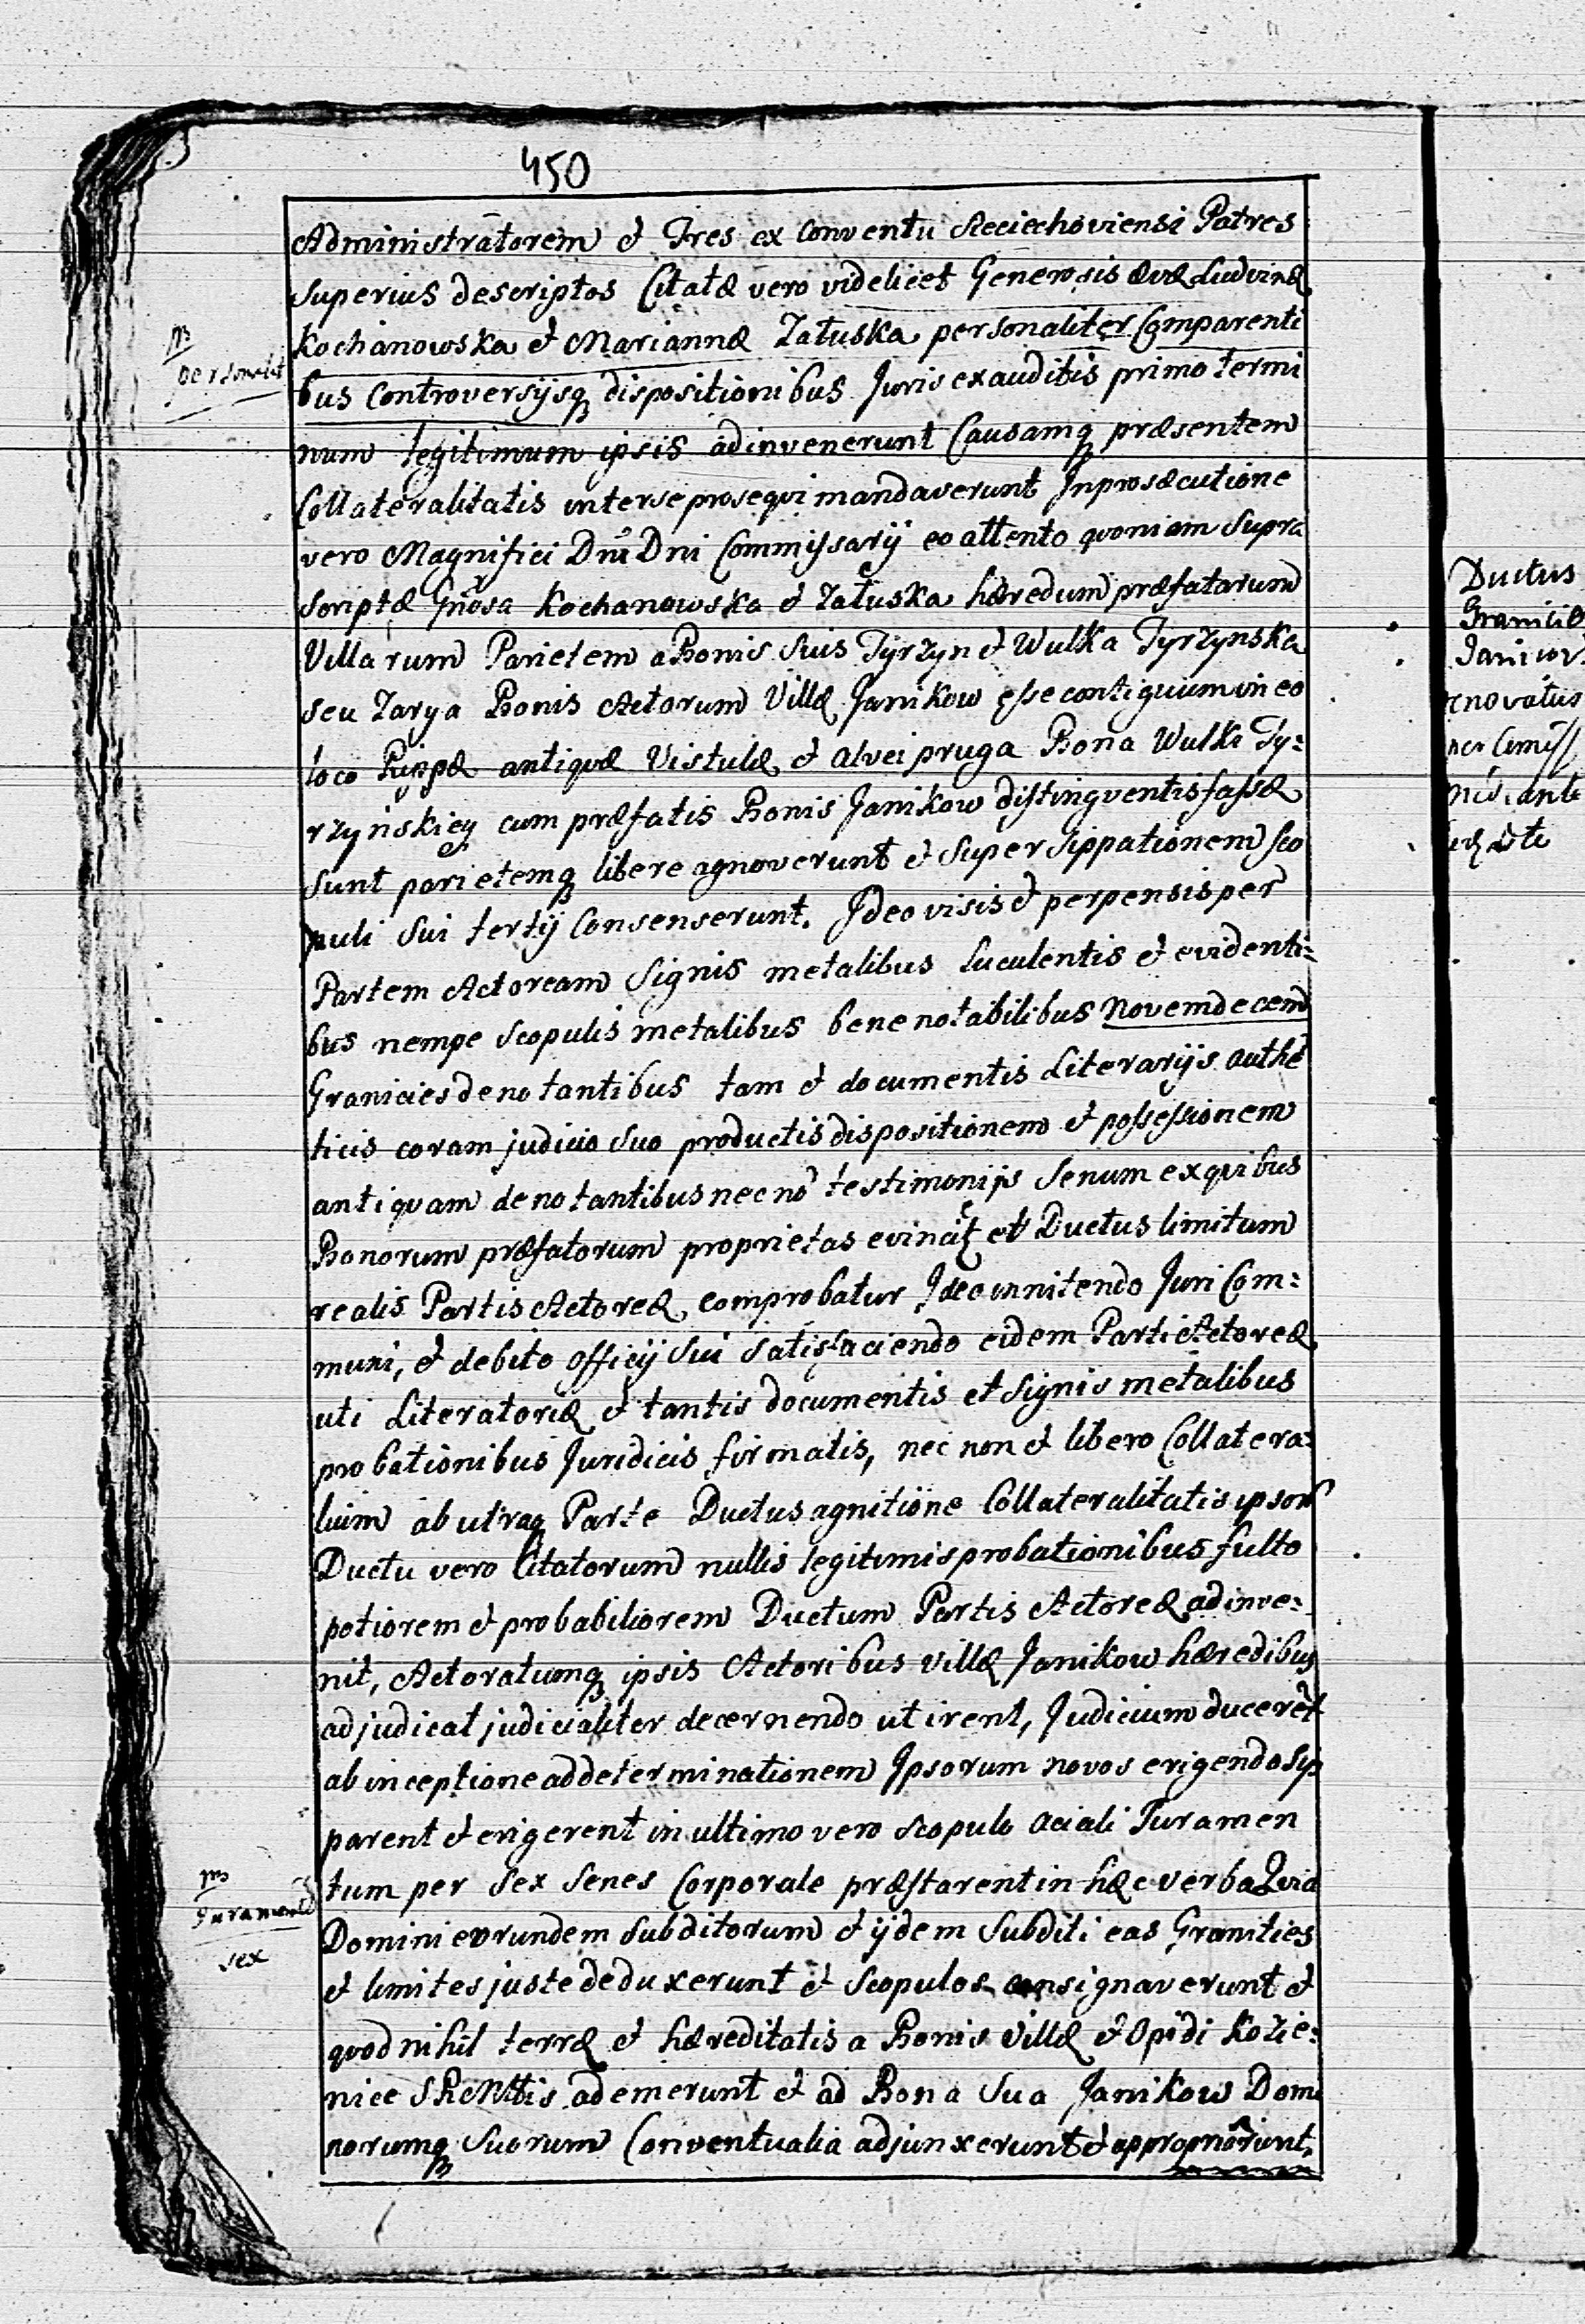 450
Administratorem et Tres ex Conventu Sieciechoviensi Patres
Superius descriptos Citatæ vero videlicet Generosis Ludvinæ
Kochanowska et Mariannæ Załuska personaliter Comparenti
bus Controversijsq dispositionibus Juris exauditis primo termi
num legitimum ipsis adinvenerunt Causamq præsentem
Collateralitatis interse prosequi mandaverunt Inprosæcutione
vero Magnifici Dni Dni Commissarij eo attento quoniam Supra
Scriptæ Gnosa Kochanowska et Załuska hæredum præfatarum
Villarum Parietem a Bonis Suis Tyrzyn et Wulka Tyrzynska
seu Zarya Bonis Actorum Villæ Janikow esse contiguium in eo
loco Ruppæ antiquæ Vistulæ et alvei pruga Bona Wulki Ty:
rzyńskiey cum præfatis Bonis Janikow distingventis fassæ
sunt parietemq libere agnoverunt et Super Sippationem sco
puli Sui tertij Consenserunt. Ideo visis et perpensis per
Partem Actoream Signis metalibus luculentis et evidenti:
bus nempe Scopulis metalibus bene notabilibus Novemdecem
Granicies denotantibus tam et documentis Literarijs authē
ticis coram judicio Suo productis dispositionem et possessionem
antiquam denotantibus nec nō testimonijs Senum ex quibus
Bonorum præfatorum proprietas evincit et Ductus limitum
realis Partis Actoreæ comprobatur Ideo innitendo Juri Com:
muni, et debito officij Sui Satisfaciendo eidem Parti Actoreæ
uti Literatoriæ et tantis documentis et Signis metalibus
probationibus Juridicis firmatis, nec non et libero Collatera:
lium ab utraq Parte Ductus agnitione Collateralitatis ipsorum
Ductu vero Citatorum nullis legitimis probationibus fulto
potiorem et probabiliorem Ductum Partis Actoreæ adinve:
nit, Actoratumq ipsis Actoribus Villæ Janikow hæredibus
adjudicat judicialiter decernendo ut irent, Judicium ducerēt
ab inceptione ad determinationem Ipsorum novos erigendo Syp
parent et erigerent in ultimo vero scopulo aciali Juramen
tum per Sex Senes Corporale præstarent in hæc verba Quia
Domini eorundem Subditorum et ijdem Subditi eas Granities
et limites juste deduxerunt et Scopulos consignaverunt et
quod nihil terræ et hæreditatis a Bonis Villæ et Opidi Kozie:
nice SRMttis ademerunt et ad Bona Sua Janikow Domi
norumq Suorum Conventualia adjunxerunt et appropriārunt.
personalit
Juramento
sex
Ductus